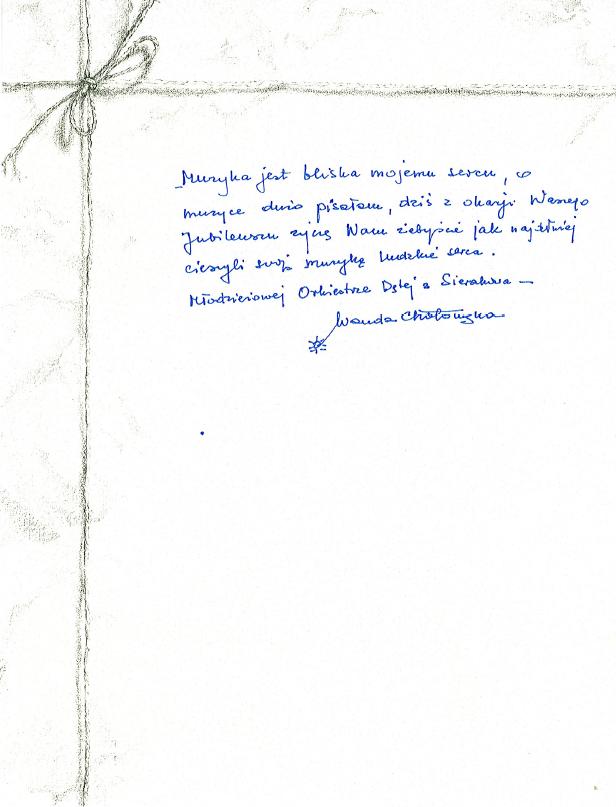 Muzyka jest bliska mojemu sercu, o
muzyce dużo pisałam, dziś z okazji Waszego
Jubileuszu życzę Wam żebyście jak najdłużej
cieszyli swoją muzyką ludzkie serca.
Młodzieżowej Orkiestrze Dętej z Sierakowa —
Wanda Chotomska